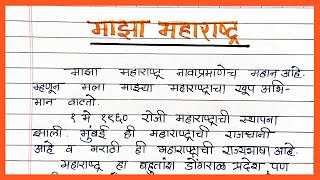 माझा महाराष्ट्र
माझा महाराष्ट्र नावाप्रमाणेच महान आहे.
म्हणून मला माझ्या महाराष्ट्राचा खूप अभि-
मान वाटतो.
१ मे १९६० रोजी महाराष्ट्राची स्थापना
झाली. मुंबई ही महाराष्ट्राची राजधानी
आहे व मराठी ही महाराष्ट्राची राज्यभाषा आहे.
महाराष्ट्र हा बहुतांश डोंगराळ प्रदेश पण